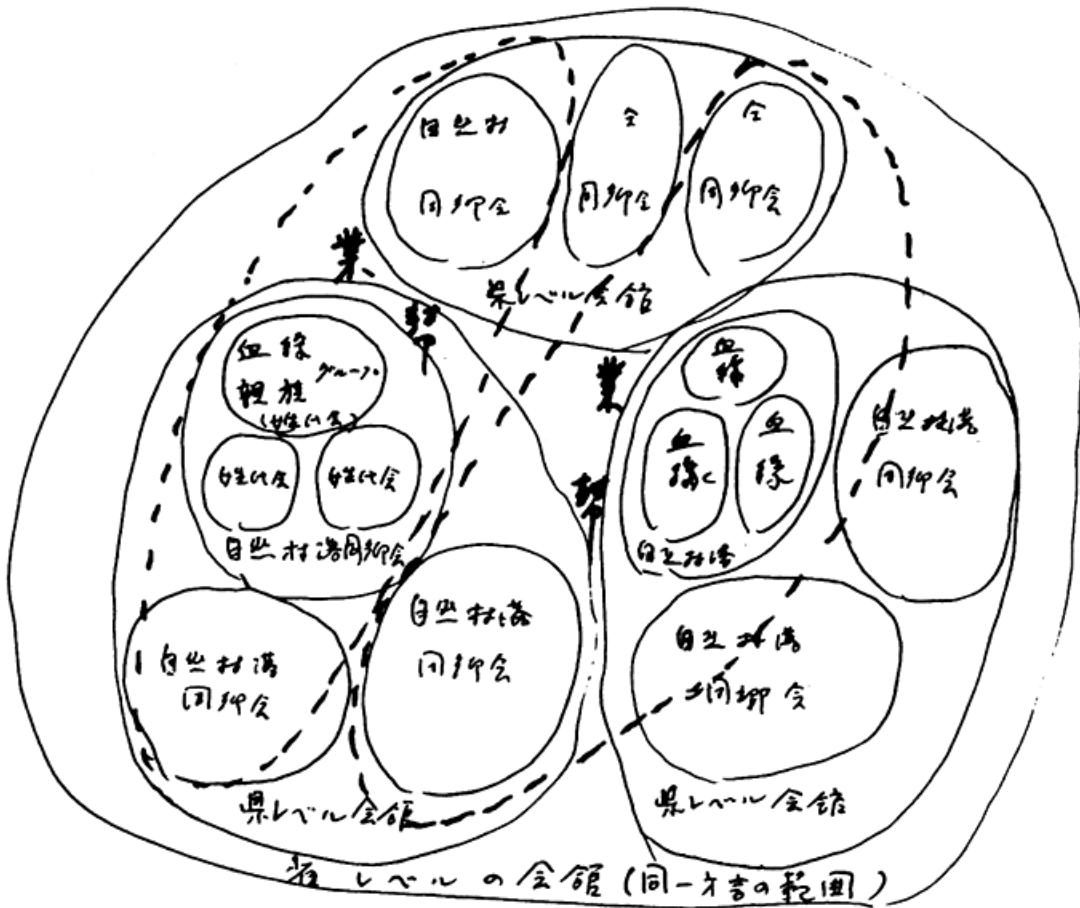 自然村
同郷会
仝
同郷会
仝
同郷会
県レベル会館
業
血縁
親族グループ
(姓氏会)
姓氏会
姓氏会
自然村落同郷会
自然村落
同郷会
自然村落
同郷会
県レベル会館
業
血
縁
血
縁
血
縁
自然村落
自然村落
同郷会
自然村落
同郷会
県レベル会館
省レベルの会館(同一方言の範囲)